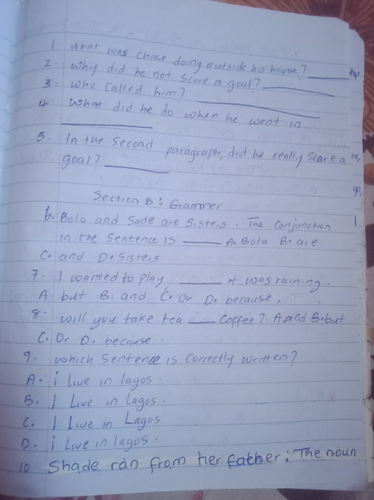 1. What was chase doing outside his house? ____
2. Why did he not score a goal? ____
3. Who called him? ____
4. Whae did he do when he went in ____
5. In the second paragraph, did he really scare a goal? ____
Section B: Grammer
6. Bola and Sade are Sisters. The Conjunction
in the Sentence is ____ A. Bola B. are
C. and D. Sisters
7. I wanted to play ____ it was raining.
A. but B. and C. Or D. because.
8. Will you take tea ____ Coffee? A. and B. but
C. Or D. because
9. Which Sentence is Correctly written?
A. i Live in lagos.
B. I Live in Lagos.
C. I Live in Lagos
D. i Live in lagos.
10 Shade ran from her father: The noun